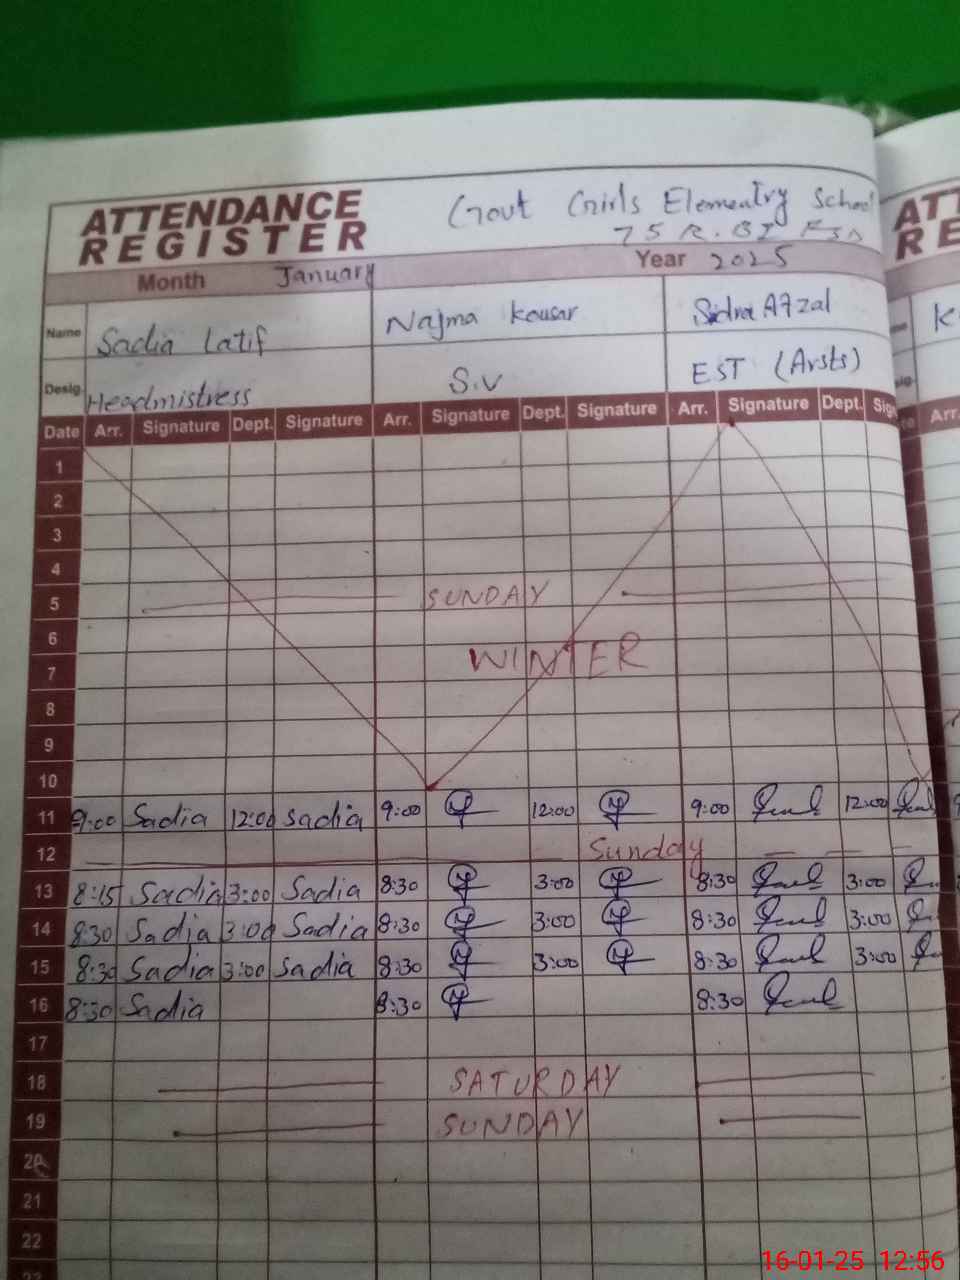 ATTENDANCE REGISTER
Govt Girls Elementry School
75 R.B
Month January Year 2025
Name Sadia Latif Najma Kousar Sidra Afzal
Desig. Headmistress S.V EST (Arsts)
Date Arr. Signature Dept. Signature Arr. Signature Dept. Signature Arr. Signature Dept.
1
2
3
4
5 SUNDAY
6
7 WINTER
8
9
10
11 9:00 Sadia 12:00 Sadia 9:00 12:00 9:00 12:00
12 Sunday
13 8:15 Sadia 3:00 Sadia 8:30 3:00 8:30 3:00
14 8:30 Sadia 3:00 Sadia 8:30 3:00 8:30 3:00
15 8:30 Sadia 3:00 Sadia 8:30 3:00 8:30 3:00
16 8:30 Sadia 8:30 8:30
17
18 SATURDAY
19 SUNDAY
20
21
22
16-01-25 12:56